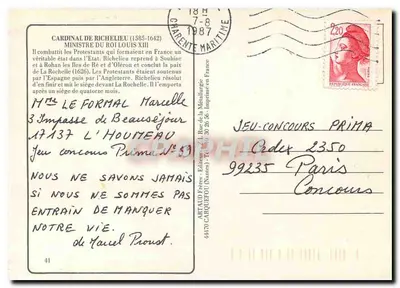 CARDINAL DE RICHELIEU (1585-1642)
MINISTRE DU ROI LOUIS XIII
Il combattit les Protestants et forma en France un
véritable état dans l'Etat. Richelieu reprend à Soubise
et à Rohan les îles de Ré et d'Oléron et conclut la paix
de La Rochelle (1626). Les Protestants étaient soutenus
par l'Espagne puis par l'Angleterre. Richelieu résolut
d'en finir et mit le siège devant La Rochelle. Il l'emporta
après un siège de quatorze mois.
Mme LE FORMAL Marcelle
3 Impasse de Beauséjour
17137 L'HOUMEAU
Jeu concours Prima N° 59
NOUS NE SAVONS JAMAIS
SI NOUS NE SOMMES PAS
ENTRAIN DE MANQUER
NOTRE VIE.
de Marcel Proust.
41
ARTAUD Frères - Editeurs - Rue de la Métallurgie
44470 CARQUEFOU (Nantes) - Imprimé en France
18 H
7-8
1987
CHARENTE MARITIME
2,20
JEU-CONCOURS PRIMA
Cedex 2350
99235 Paris
Concours